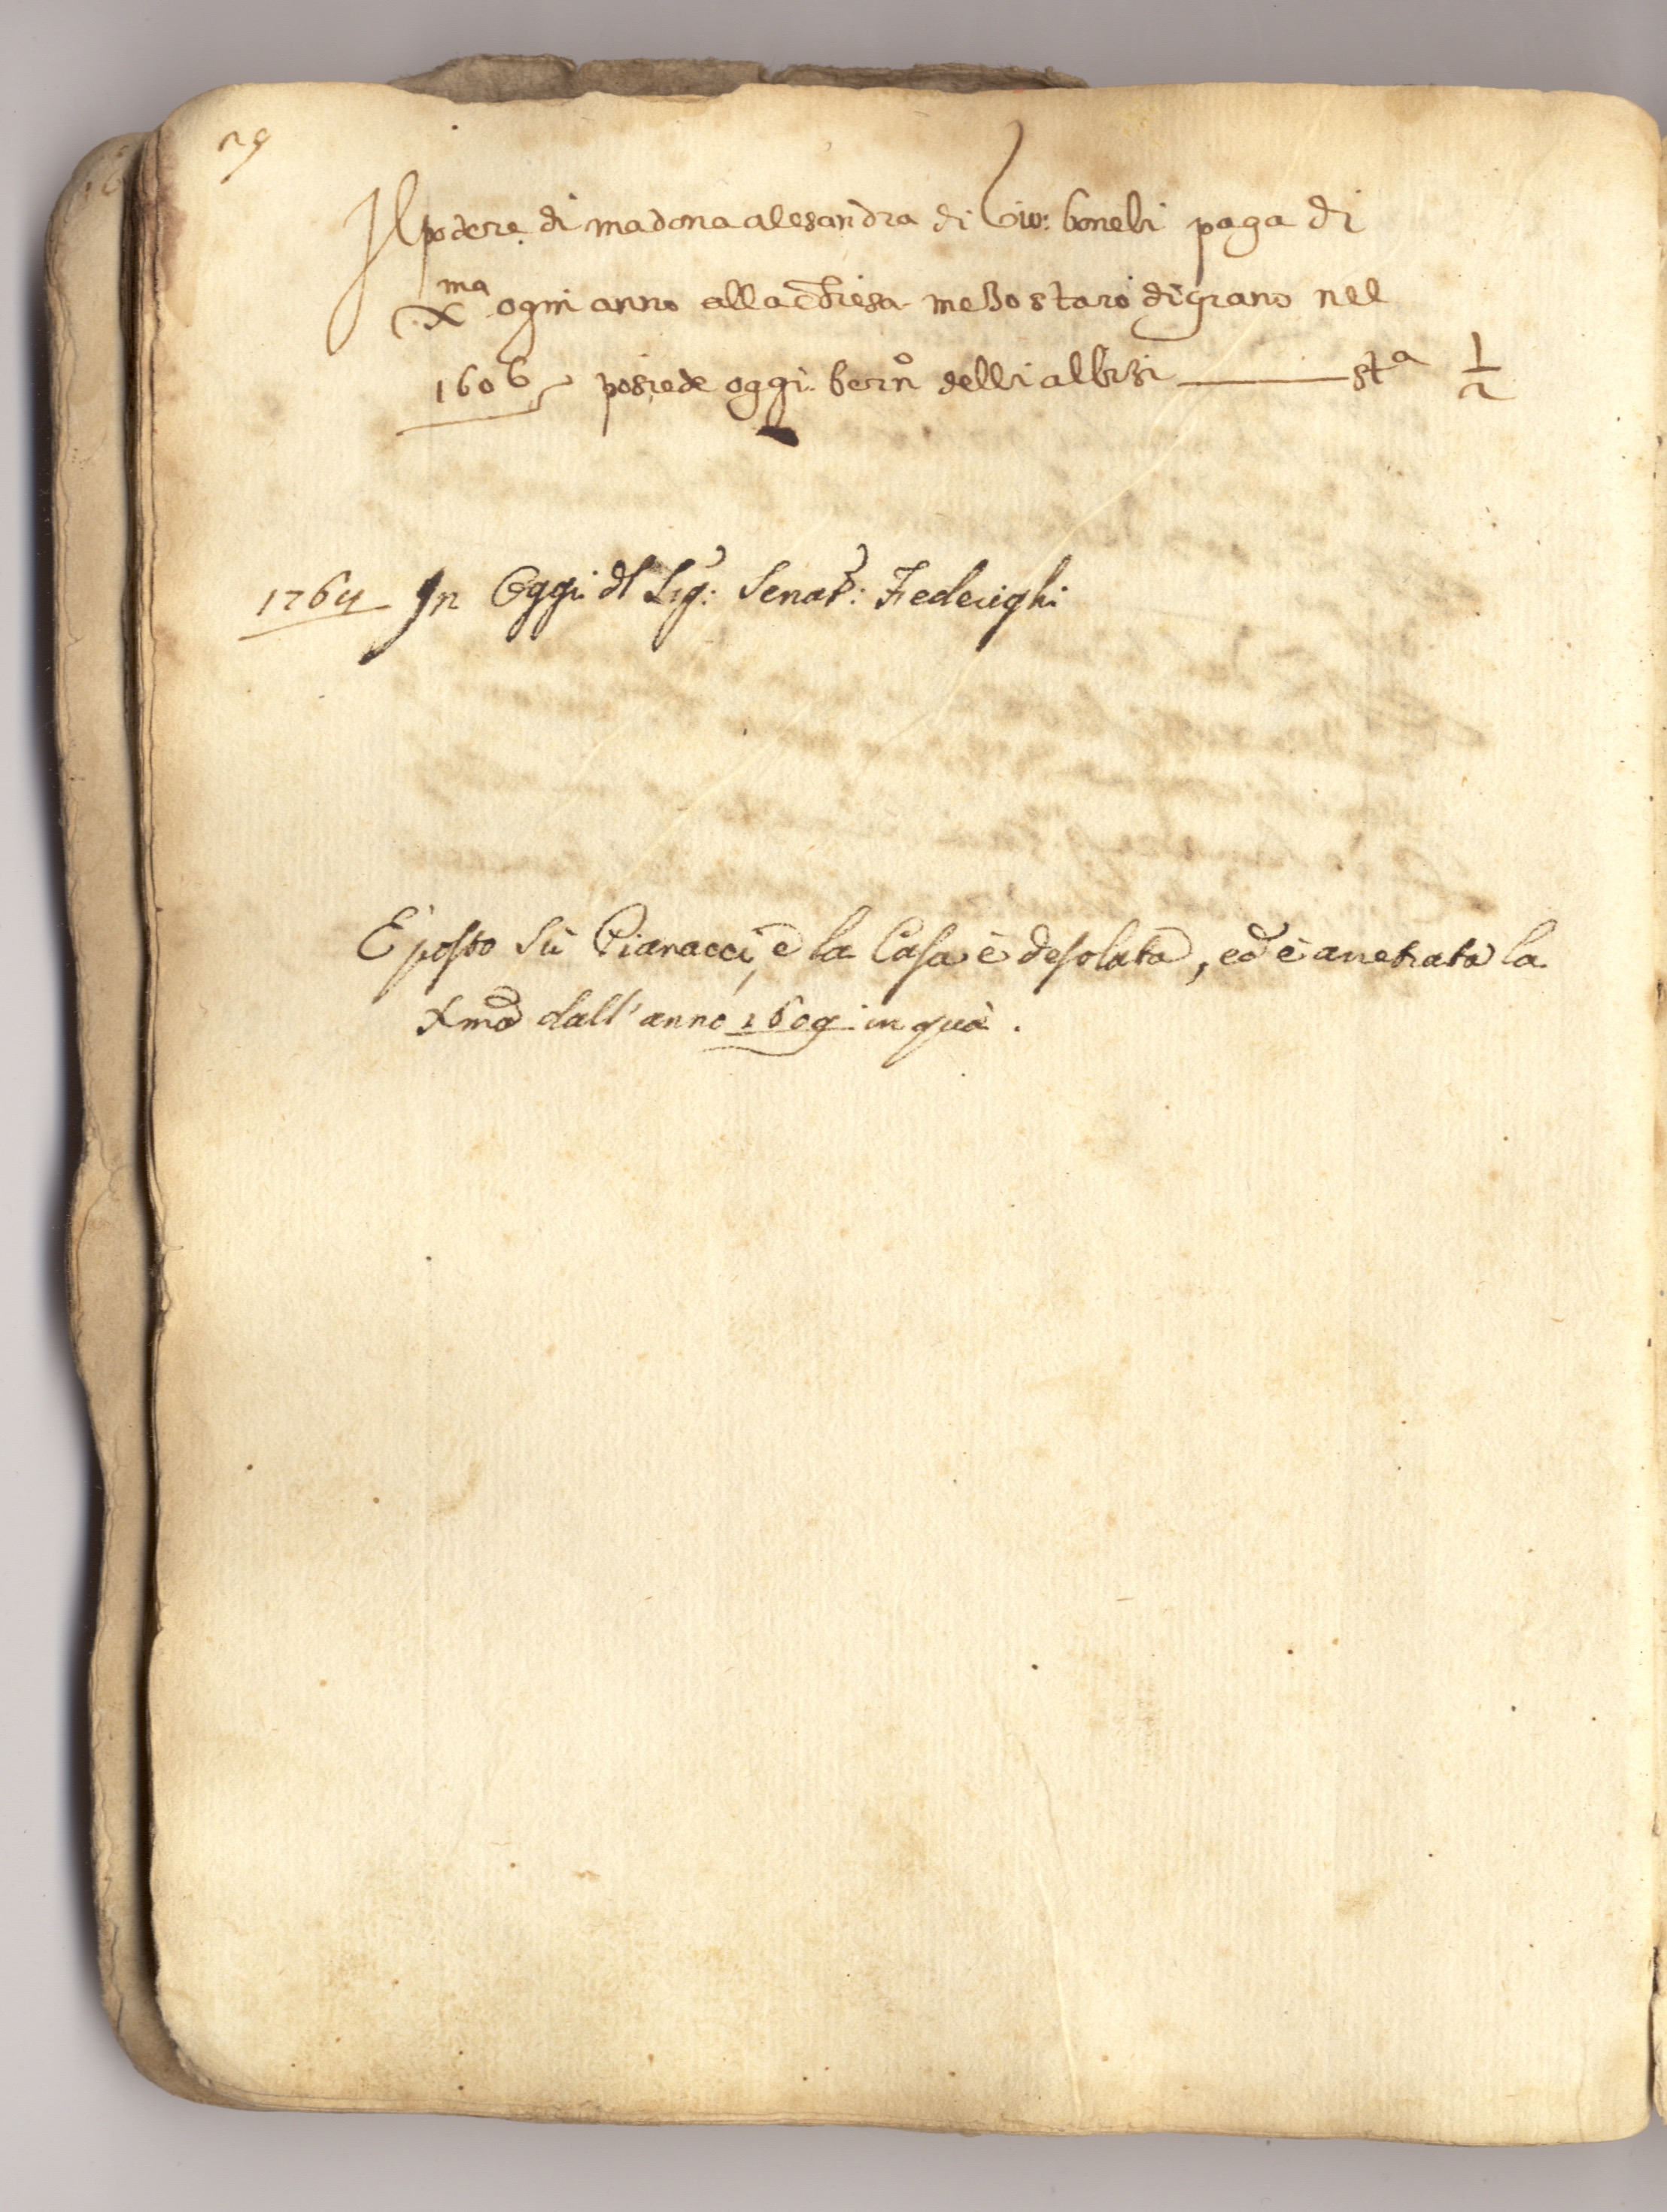 29
Il podere di madona alesandra di Gio: boneli paga di
Xma ogni anno alla chiesa mezo staro di grano nel
1606 posiede oggi berno delli albizi —— sta 1/2
1764 In Oggi dl Sig:r Senat:r Federighi
È posto Sù Pianacci, e la Casa è desolata, ed è arretrata la
Xma dall'anno 1609 in quà.